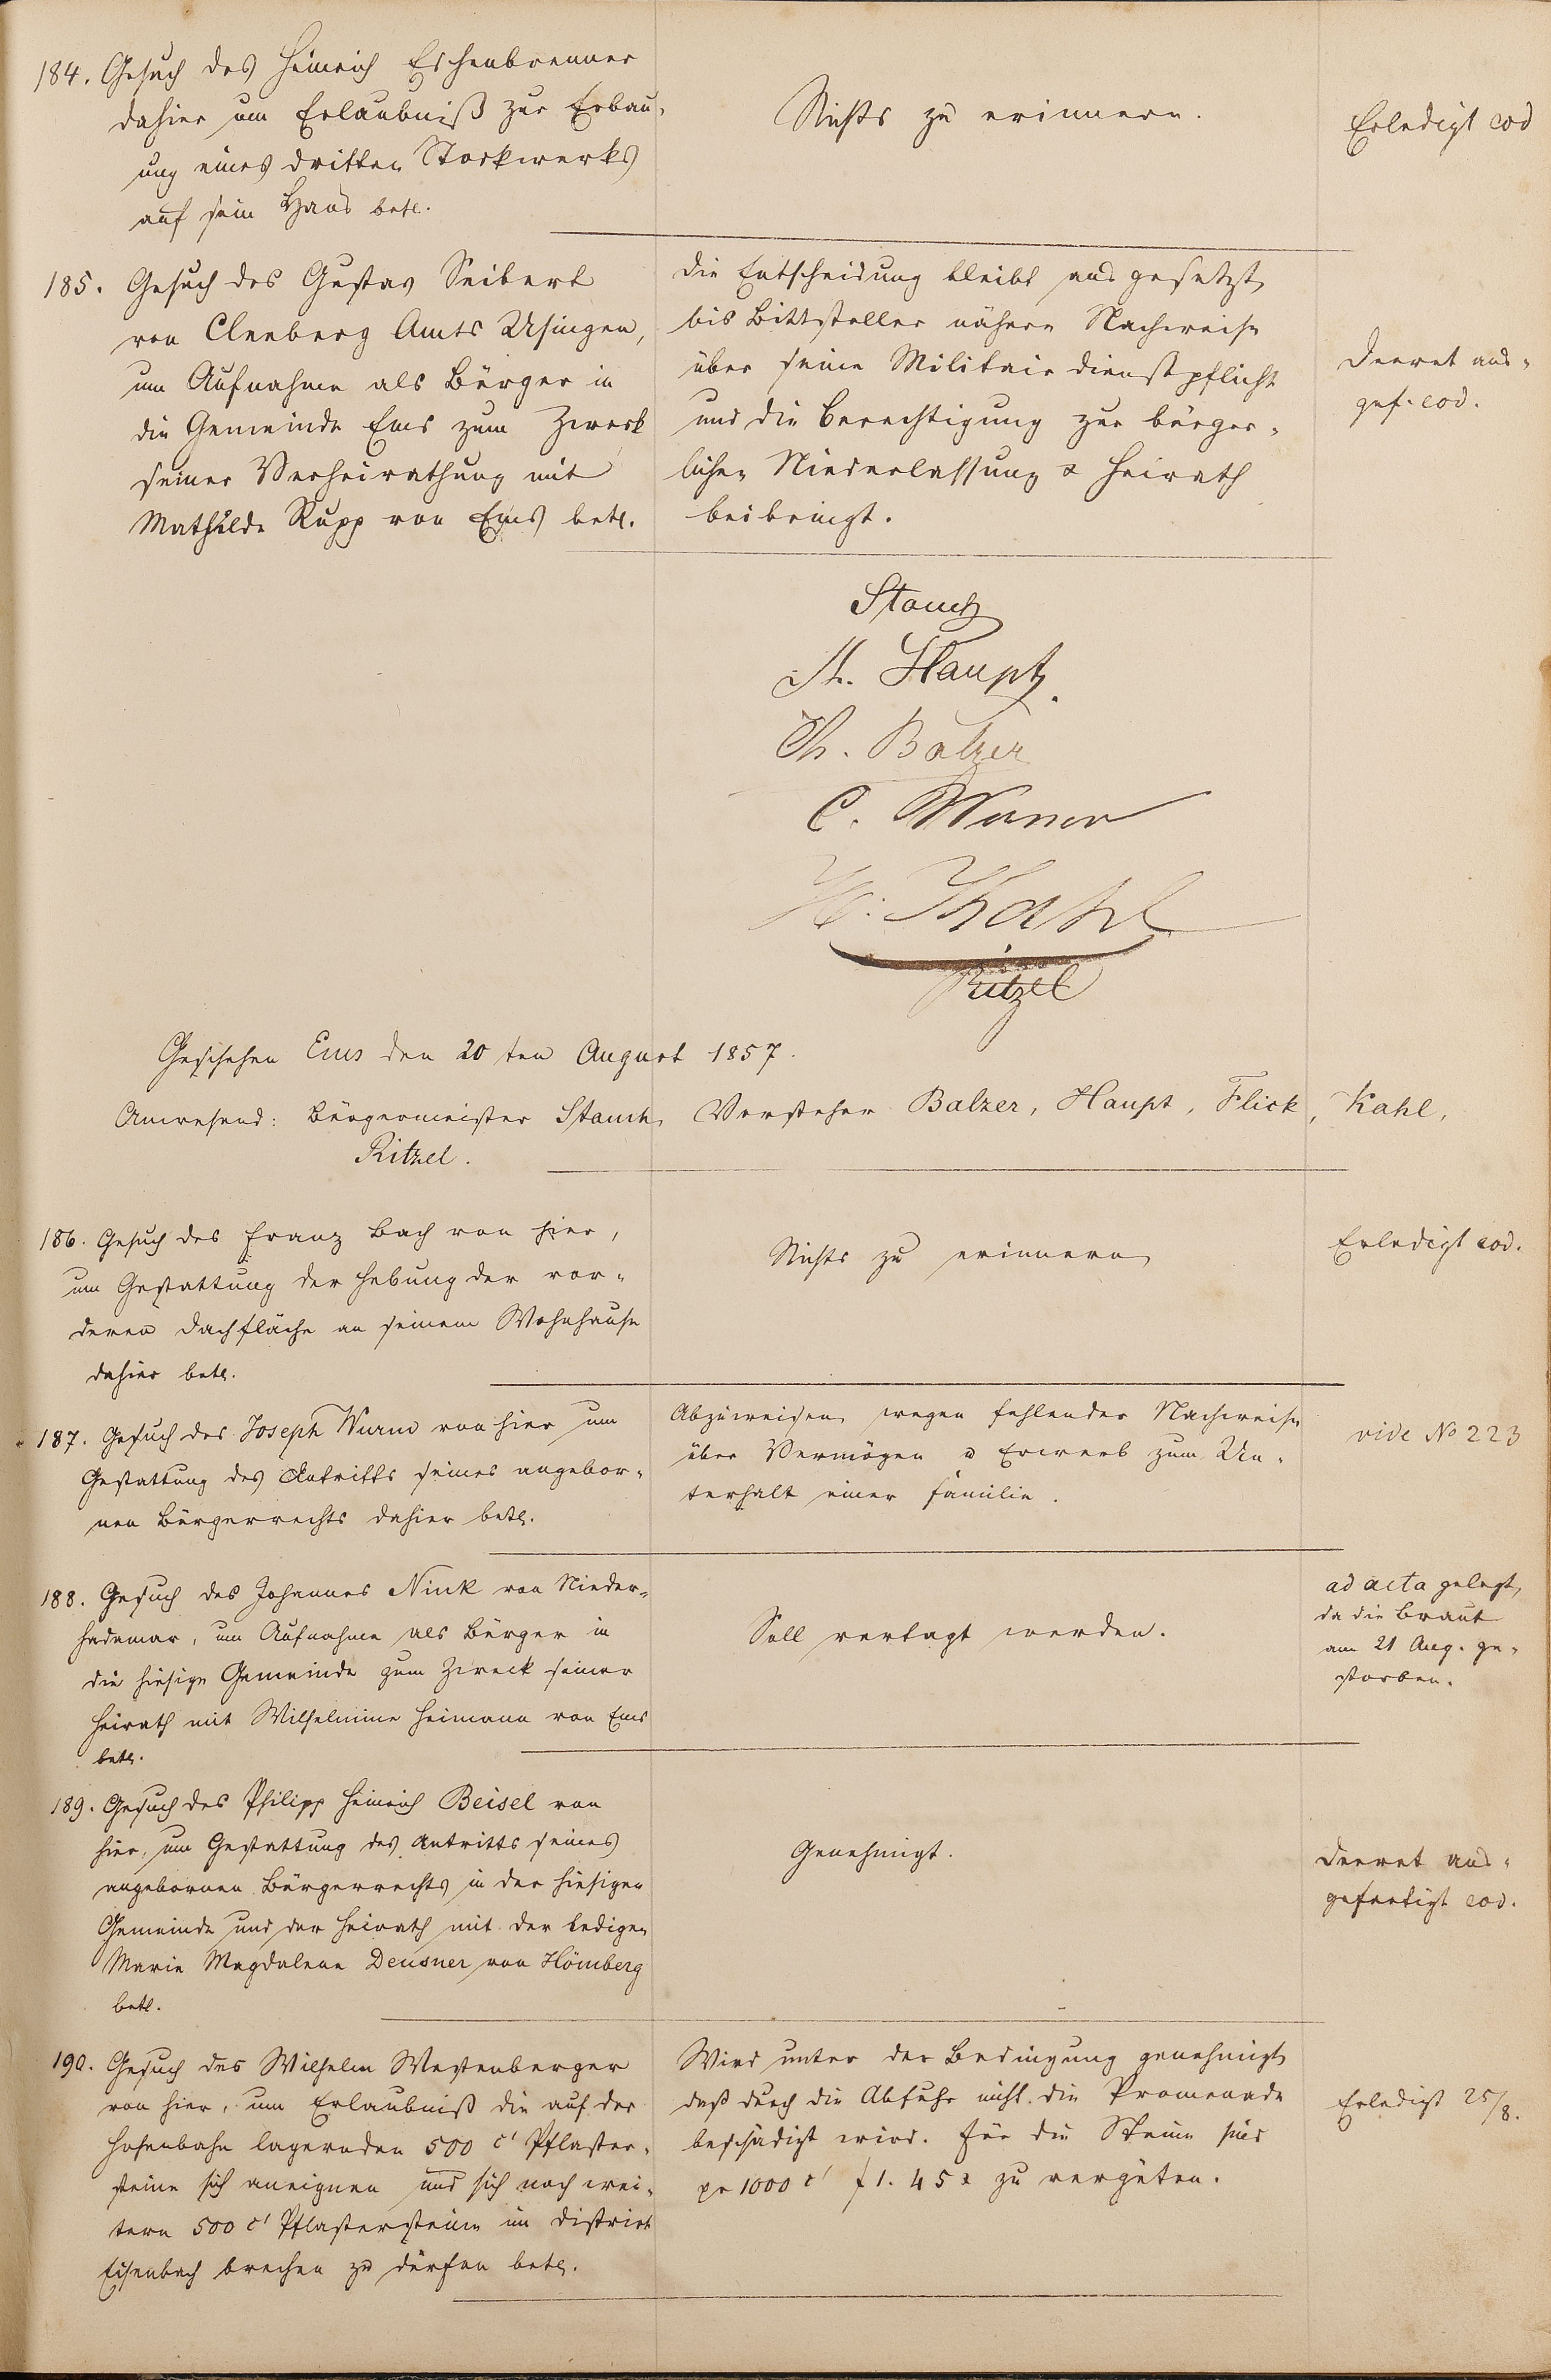 184. Gesuch des Heinrich Eschenbrenner
dahier um Erlaubniß zur Erbau-
ung eines dritten Stockwerks
auf sein Haus betr.
Nichts zu erinnern.
Erledigt eod
185. Gesuch des Gustav Seibert
von Cleeberg Amts Usingen,
um Aufnahme als Bürger in
die Gemeinde Ems zum Zweck
seiner Verheirathung mit
Mathilde Rupp von Ems betr.
die Entscheidung bleibt ausgesetzt,
bis Bittsteller nähere Nachweise
über seine Militairdienstpflicht
und die Berechtigung zur bürger-
lichen Niederlassung & Heirath
beibringt.
Decret aus-
gef. eod.
Stauch
A. Haupt.
Ch. Balzer
C. Wurm
H. Kahl
Ritzel
Geschehen Ems den 20ten August 1857.
Anwesend: Bürgermeister Stauch, Vorsteher Balzer, Haupt, Flick, Kahl,
Ritzel.
186. Gesuch des Franz Bach von hier,
um Gestattung der Hebung der vor-
deren Dachfläche an seinem Wohnhause
dahier betr.
Nichts zu erinnern
Erledigt eod.
187. Gesuch des Joseph Wurm von hier um
Gestattung des Antritts seines angebor-
nen Bürgerrechts dahier betr.
Abzuweisen wegen fehlender Nachweise
über Vermögen u Erwerb zum Un-
terhalt einer Familie.
vide No 223
188. Gesuch des Johannes Nink von Nieder-
hadamar, um Aufnahme als Bürger in
die hiesige Gemeinde zum Zweck seiner
Heirath mit Wilhelmine Heimann von Ems
betr.
Soll vertagt werden.
ad acta gelegt,
da die Braut
am 21 Aug. ge-
storben.
189. Gesuch des Philipp Heinrich Beisel von
hier, um Gestattung des Antritts seines
angebornen Bürgerrechts in der hiesigen
Gemeinde und der Heirath mit der ledigen
Marie Magdalene Deusner von Hömberg
betr.
Genehmigt.
Decret aus-
gefertigt eod.
190. Gesuch des Wilhelm Westenberger
von hier, um Erlaubniß die auf der
Hohenbahn lagernden 500 c' Pflaster-
steine sich aneignen und sich noch wei-
tern 500 c' Pflastersteine im District
Eisenbach brechen zu dürfen betr.
Wird unter der Bedingung genehmigt,
daß durch die Abfuhr nicht die Promenade
beschädigt wird. Für die Steine sind
pr 1000 c' f 1. 45 x zu vergüten.
Erledigt 25/8.